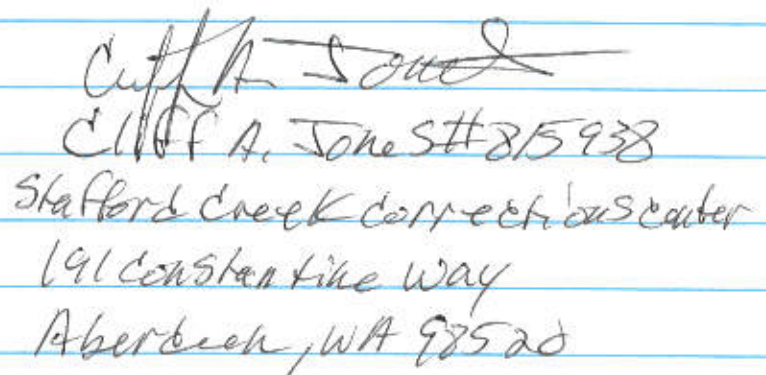 Cliff A. Jones
Cliff A. Jones #815938
Stafford Creek Corrections center
191 Constantine Way
Aberdeen, WA 98520